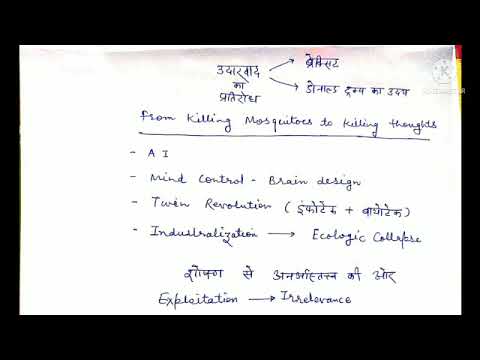 उदारवाद
का
प्रतिरोध
ब्रेक्सिट
डोनाल्ड ट्रम्प का उदय
From Killing Mosquitoes to Killing thoughts
- AI
- Mind Control - Brain design
- Twin Revolution (इंफोटेक + बायोटेक)
- Industralization → Ecologic Collapse
शोषण से अनप्रासंगिकता की ओर
Exploitation → Irrelevance